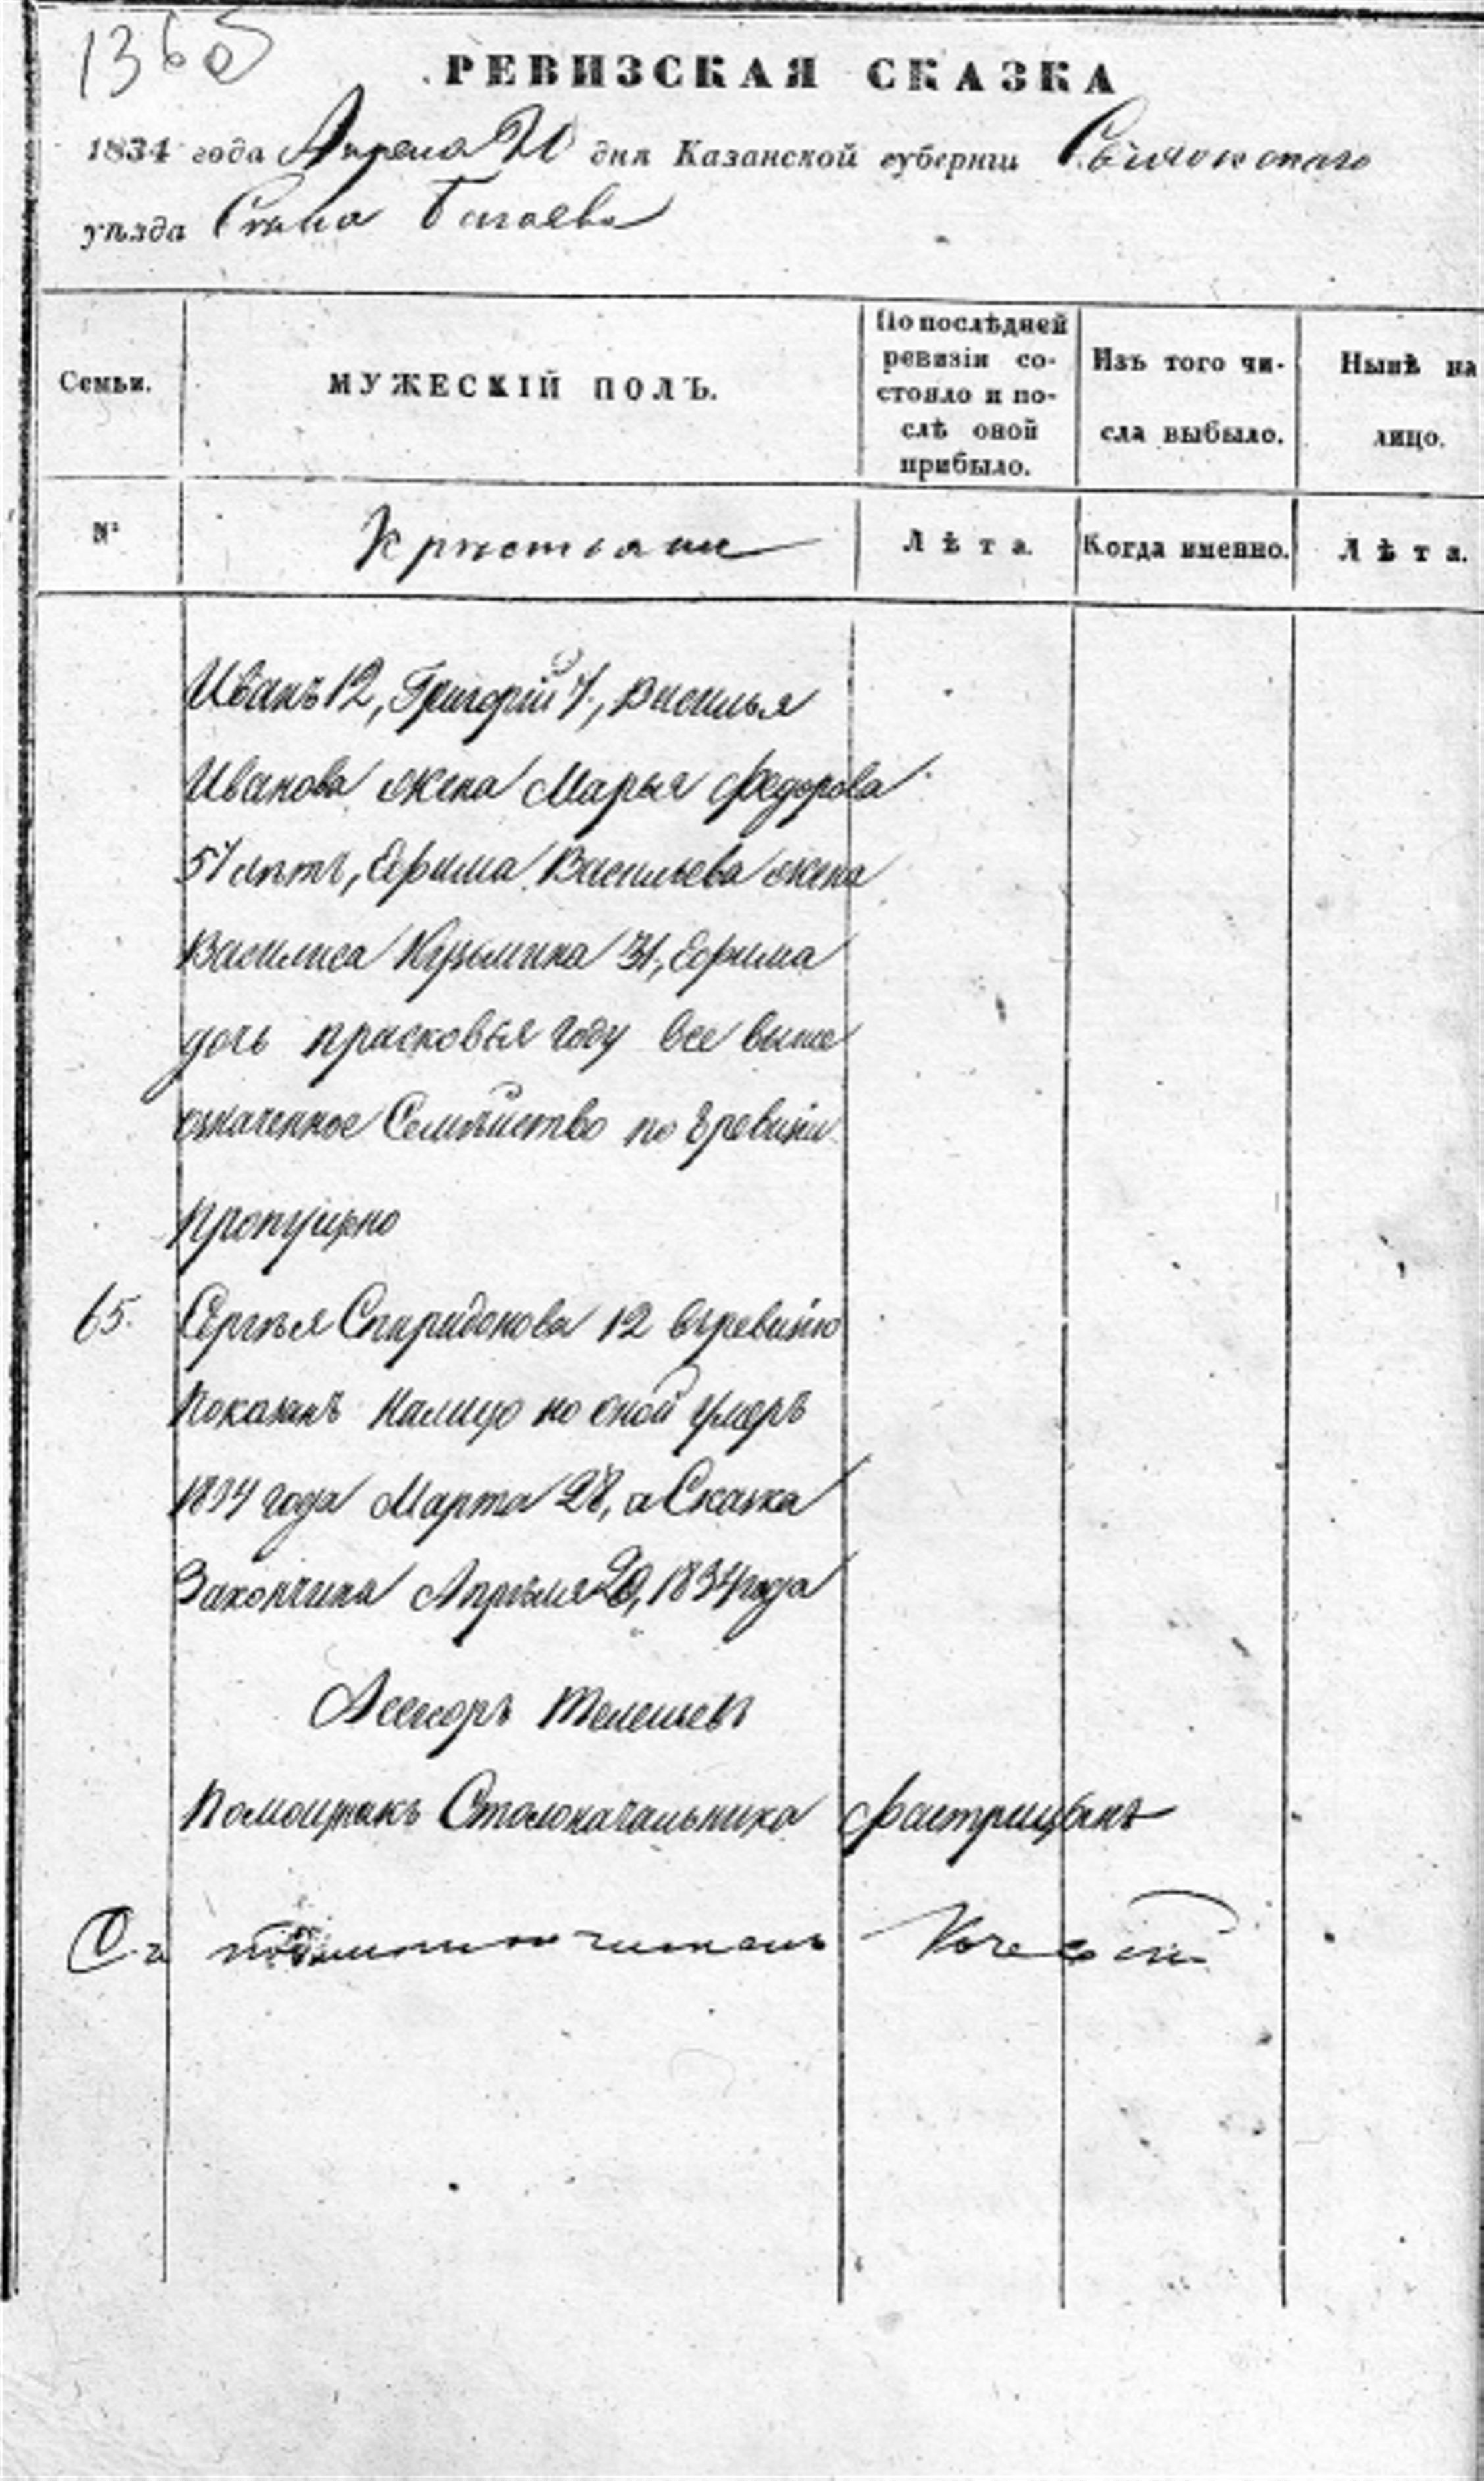 1360
РЕВИЗСКАЯ СКАЗКА
1834 года Апреля 20 дня Казанской губернии
уѣзда Села
Семьи. МУЖЕСКІЙ ПОЛЪ. По послѣдней ревизіи состояло и послѣ оной прибыло. Изъ того числа выбыло. Нынѣ на лицо.
№ Крестьяне Лѣта. Когда именно. Лѣта.
Иванъ 12, Григорій 7, Василья
Иванова жена Марья Федорова
57 лѣтъ, Ефима Васильева жена
Василиса Кузьмина 31, Ефима
дочь Прасковья году все выше
означенное Семѣйство по ревизіи
Пропущено
65. Сергѣя Спиридонова 12 въ ревизію
Показанъ Налицо но оной умеръ
1834 года Марта 28, а Сказка
Закончина Апрѣля 20, 1834 года
Асесоръ Телешевъ
Помощникъ Столоначальника